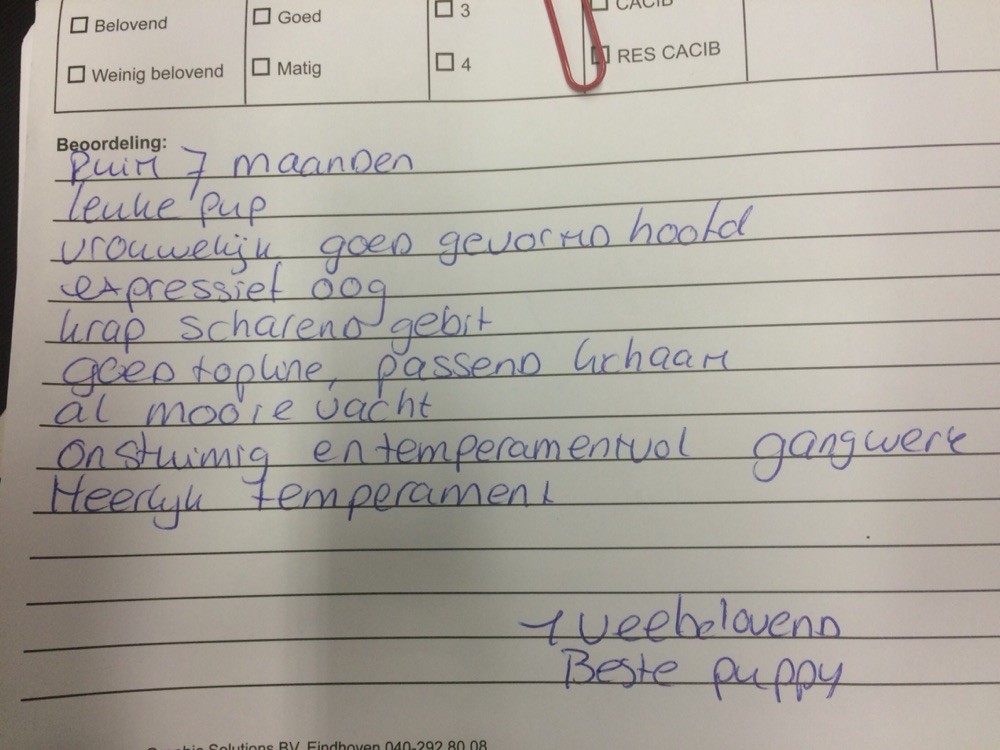 Belovend
Goed
3
CACIB
Weinig belovend
Matig
4
RES CACIB
Beoordeling:
Ruim 7 maanden
leuke pup
vrouwelijk goed gevormd hoofd
expressief oog
krap scharend gebit
goed topline, passend lichaam
al mooie vacht
onstuimig en temperamentvol gangwerk
Heerlijk temperament
1 veelbelovend
Beste puppy
Solutions BV, Eindhoven 040-292 80 08